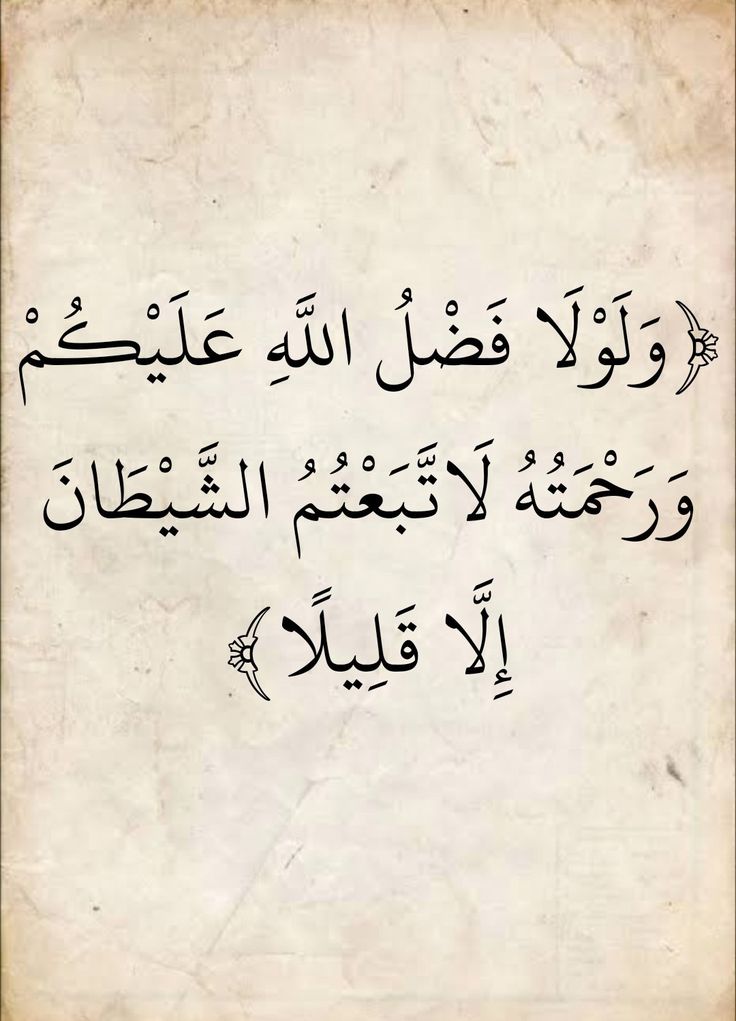 ﴿وَلَوْلَا فَضْلُ اللَّهِ عَلَيْكُمْ
وَرَحْمَتُهُ لَاتَّبَعْتُمُ الشَّيْطَانَ
إِلَّا قَلِيلًا﴾